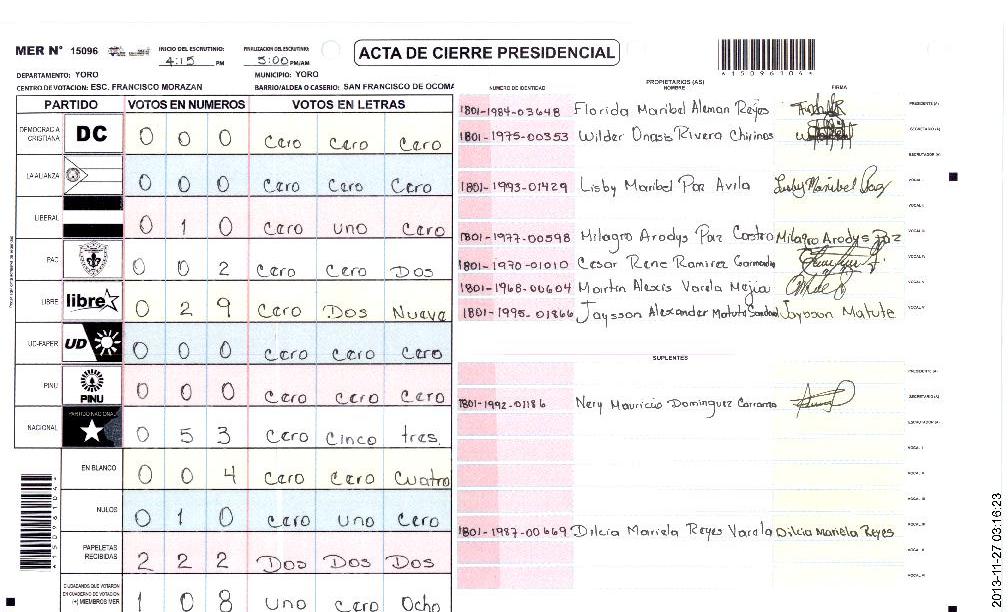 MER N° 15096
INICIO DEL ESCRUTINIO:
4:15 PM
FINALIZACION DEL ESCRUTINIO:
5:00 PM/AM
ACTA DE CIERRE PRESIDENCIAL
DEPARTAMENTO: YORO
MUNICIPIO: YORO
CENTRO DE VOTACION: ESC. FRANCISCO MORAZAN
BARRIO/ALDEA O CASERIO: SAN FRANCISCO DE OCOMA
PARTIDO VOTOS EN NUMEROS VOTOS EN LETRAS
DEMOCRACIA CRISTIANA DC 0 0 0 Cero Cero Cero
LA ALIANZA 0 0 0 Cero Cero Cero
LIBERAL 0 1 0 Cero uno Cero
PAC 0 0 2 Cero Cero Dos
LIBRE libre 0 2 9 Cero Dos Nueve
UD-FAPER UD 0 0 0 Cero Cero Cero
PINU PINU 0 0 0 Cero Cero Cero
NACIONAL PARTIDO NACIONAL 0 5 3 Cero Cinco tres.
EN BLANCO 0 0 4 Cero Cero Cuatro
NULOS 0 1 0 Cero uno Cero
PAPELETAS RECIBIDAS 2 2 2 Dos Dos Dos
CIUDADANOS QUE VOTARON EN CUADERNO DE VOTACION (+) MIEMBROS MER 1 0 8 uno cero Ocho
NUMERO DE IDENTIDAD
PROPIETARIOS (AS)
NOMBRE
FIRMA
1801-1984-03648 Florida Maribel Aleman Reyes PRESIDENTE (A)
1801-1975-00353 Wilder Onasis Rivera Chirinos SECRETARIO (A)
ESCRUTADOR (A)
1801-1993-01429 Lisby Maribel Paz Avila Lisby Maribel Paz VOCAL I
VOCAL II
1801-1977-00598 Milagro Arodys Paz Castro Milagro Arodys Paz VOCAL III
1801-1970-01010 Cesar Rene Ramirez VOCAL IV
1801-1968-00604 Martin Alexis Varela Mejia VOCAL V
1801-1995-01866 Jaysson Alexander Matute Jaysson Matute VOCAL VI
SUPLENTES
PRESIDENTE (A)
1801-1992-01186 Nery Mauricio Dominguez SECRETARIO (A)
ESCRUTADOR (A)
VOCAL I
VOCAL II
VOCAL III
1801-1987-00669 Dilcia Mariela Reyes Varela Dilcia Mariela Reyes VOCAL IV
VOCAL V
VOCAL VI
2013-11-27 03:16:23